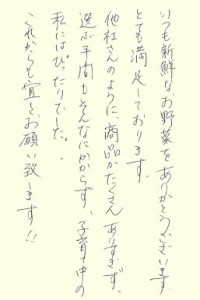 いつも新鮮なお野菜をありがとうございます
とても満足しております。
他社さんのように、商品がたくさんありすぎず、
選ぶ手間もそんなにかからず、子育て中の
私にはぴったりでした。
これからも宜しくお願い致します!!